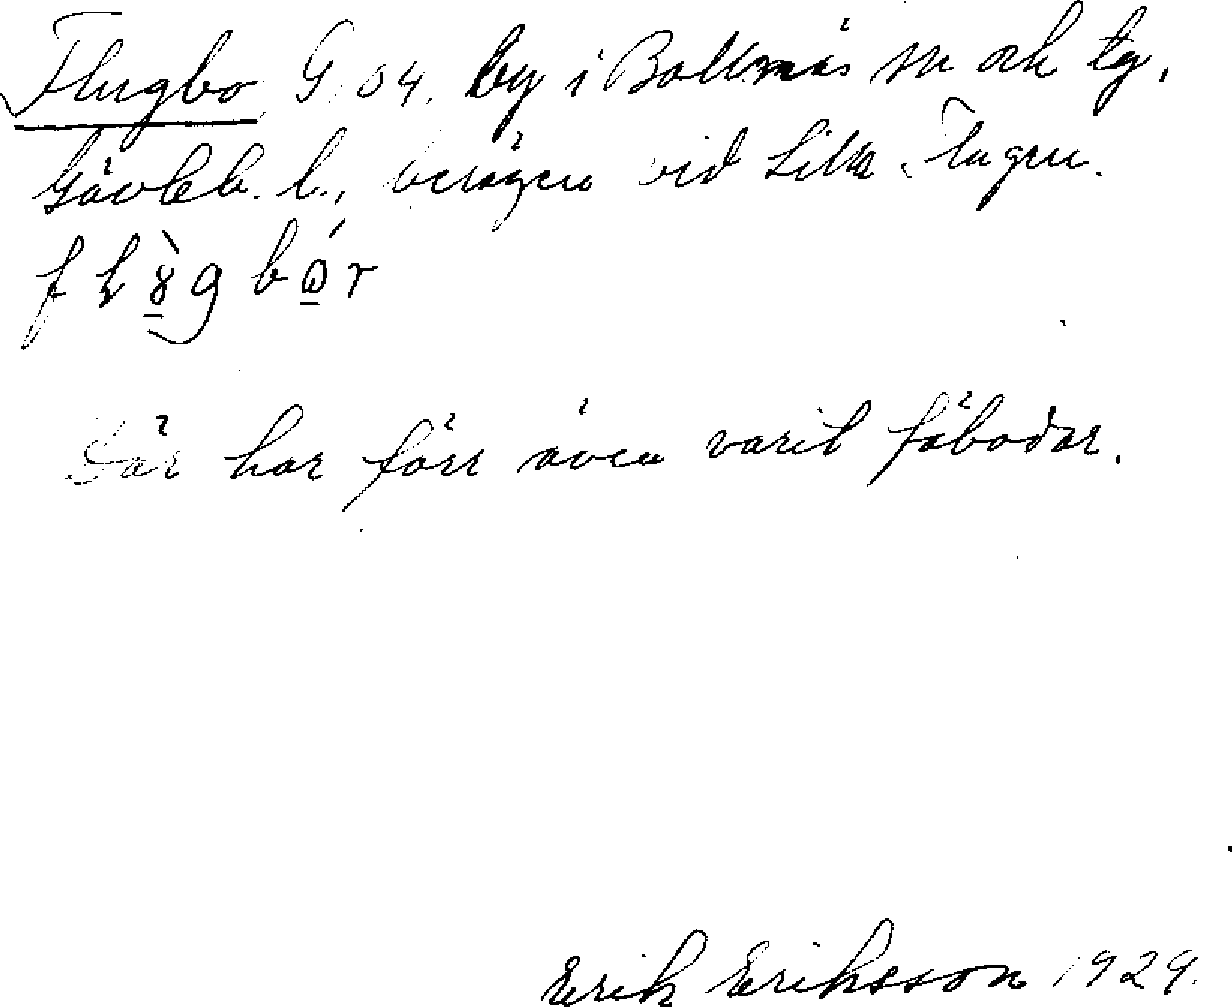 Flugbo G 04. by i Bollnäs sn och tg.
Gävleb. l., belägen vid Lilla Flugen.
Där har förr även varit fäbodar.
Erik Eriksson 1929.